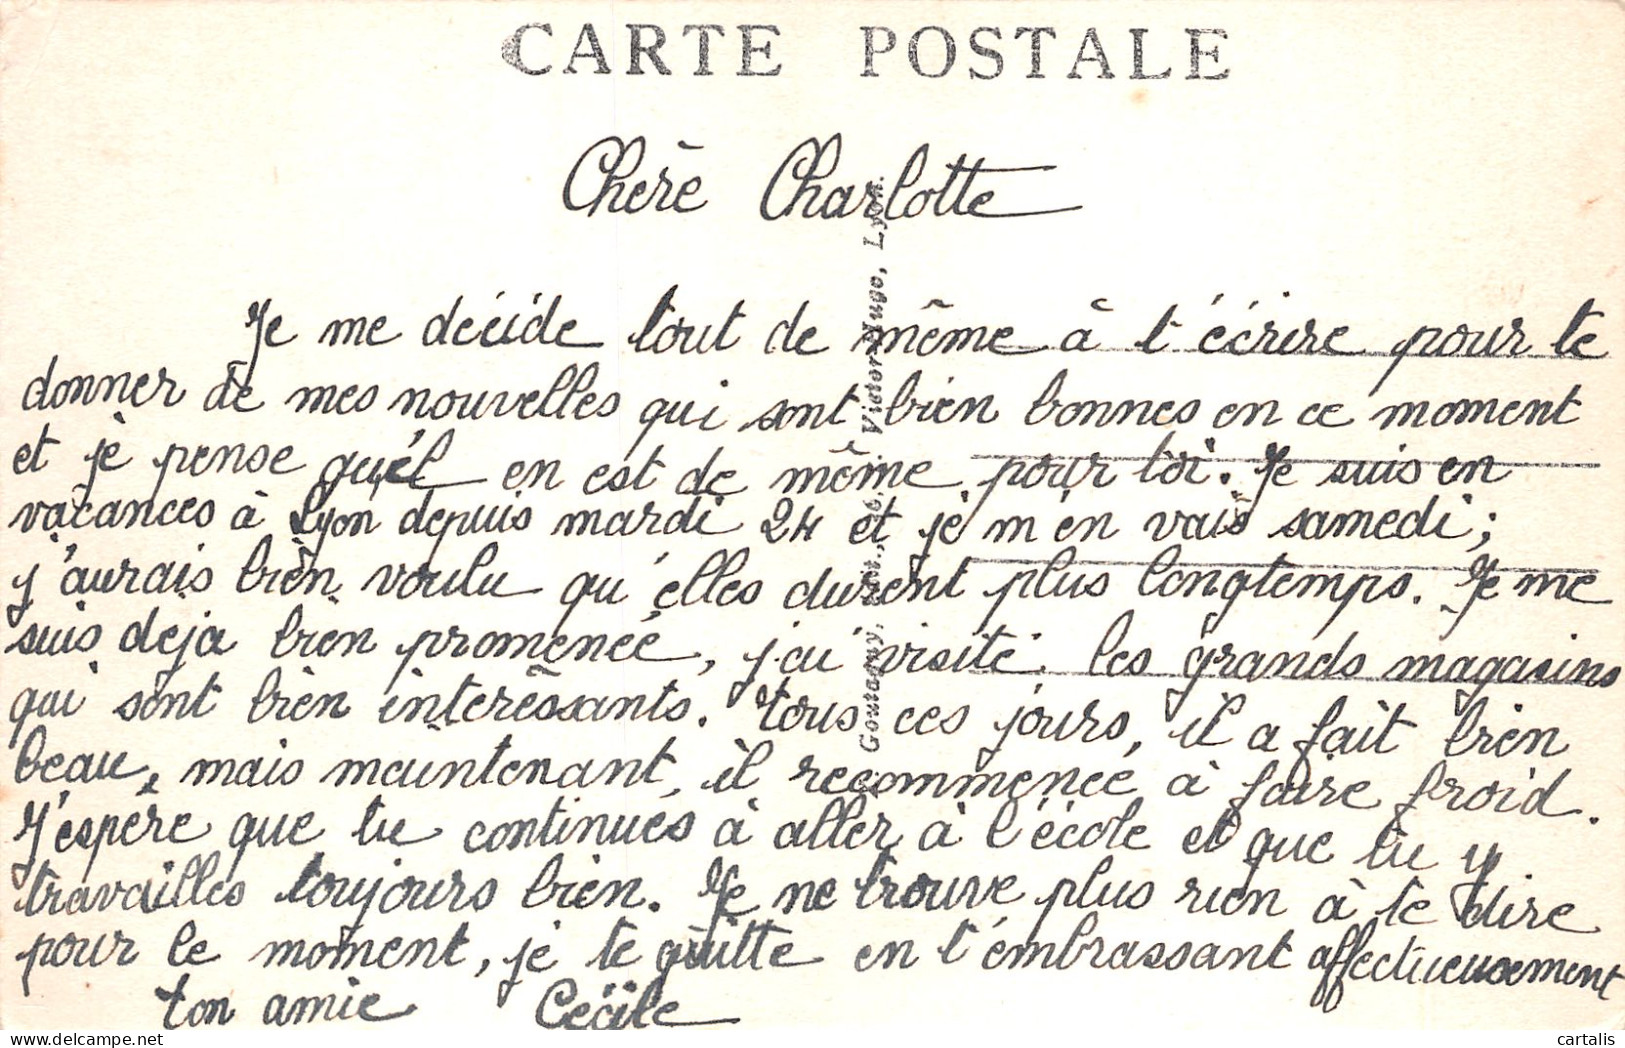 CARTE POSTALE
Chère Charlotte
Je me décide tout de même à t'écrire pour te
donner de mes nouvelles qui sont bien bonnes en ce moment
et je pense qu'il en est de même pour toi. Je suis en
vacances à Lyon depuis mardi 24 et je m'en vais samedi;
j'aurais bien voulu qu'elles durent plus longtemps. Je me
suis deja bien promenée, j'ai visité les grands magasins
qui sont bien interéssants. Tous ces jours, il a fait bien
beau, mais maintenant, il recommence à faire froid.
J'espère que tu continues à aller à l'école et que tu y
travailles toujours bien. Je ne trouve plus rien à te dire
pour le moment, je te quitte en t'embrassant affectueusement
ton amie Cécile
Goutagny, Victor-Hugo, Lyon.
cartalis
www.delcampe.net